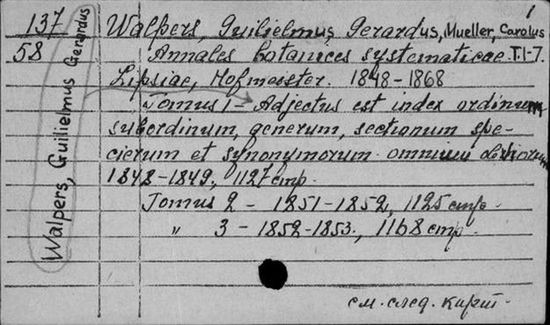 1
137
58
Walpers, Guilielmus Gerardus
Walpers, Guilielmus Gerardus, Mueller, Carolus
Annales botanices systematicae. T.1-7.
Lipsiae, Hofmeister. 1848-1868
Tomus 1 - Adjectus est index ordinum
subordinum, generum, sectionum spe-
cierum et synonymorum omnium
1848-1849, 1127 стр.
Tomus 2 - 1851-1852, 1125 стр.
" 3 - 1852-1853., 1168 стр.
см. след. карт.